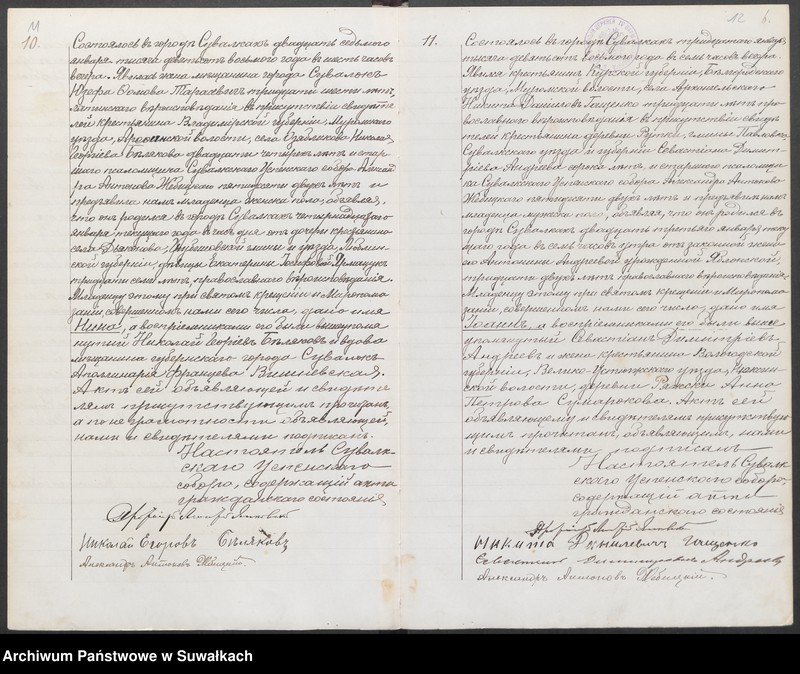 10.
Состоялось въ городѣ Сувалкахъ двадцать седьмого
января тысяча девятьсотъ восьмого года въ шесть часовъ
вечера. Явилась жена мѣщанина города Сувалокъ
Юзефа Тарасевичъ тридцати шести лѣтъ,
латинскаго вѣроисповѣданія въ присутствіи свидѣте
лей крестьянина Владимірской губерніи Муромскаго
уѣзда, волости, села Николая
Георгіева Бѣлякова двадцати четырехъ лѣтъ и стар
шаго псаломщика Сувалкскаго Успенскаго собора Александ
ра Антонова пятидесяти двухъ лѣтъ и
предъявила намъ младенца женска пола, объявляя,
что онъ родился въ городѣ Сувалкахъ четырнадцатаго
января текущаго года въ часъ дня отъ дочери крестьянина
села гмины и уѣзда, Люблин
ской губерніи, дѣвицы Екатерины Іосифовой
тридцати семи лѣтъ, православнаго вѣроисповѣданія.
Младенцу этому при святомъ крещеніи и Миропома
заніи, совершенномъ нами сего числа, дано имя
Нина, а воспріемниками его были вышеупомя
нутый Николай Георгіевъ Бѣляковъ и вдова
мѣщанина губернскаго города Сувалокъ
Аполлинарія Францева Вишневская.
Актъ сей объявляющей и свидѣте
лямъ присутствующимъ прочитанъ,
а по неграмотности объявляющей,
нами и свидѣтелями подписанъ.
Настоятель Сувалк-
скаго Успенскаго
собора, содержащій акты
гражданскаго состоянія
Николай Егоровъ Бѣляковъ
Александръ Антоновъ
12 6.
11.
Состоялось въ городѣ Сувалкахъ тридцатаго января
тысяча девятьсотъ восьмого года въ семь часовъ вечера.
Явился крестьянинъ Курской губерніи, Бѣлгородскаго
уѣзда, Муромской волости, села Архангельскаго
Никита Даниловъ Гащенко тридцати лѣтъ пра
вославнаго вѣроисповѣданія въ присутствіи свидѣ
телей крестьянина деревни Рутки, гмины Павловка
Сувалкскаго уѣзда и губерніи Севастіана Димит
ріева Андреева сорока лѣтъ, и старшаго псаломщи
ка Сувалкскаго Успенскаго собора Александра Антонова
пятидесяти двухъ лѣтъ и предъявилъ намъ
младенца мужеска пола, объявляя, что онъ родился въ
городѣ Сувалкахъ двадцать третьяго января теку
щаго года въ семь часовъ утра отъ законной жены
его Антонины Андреевой урожденной Яблонской,
тридцати двухъ лѣтъ православнаго вѣроисповѣданія.
Младенцу этому при святомъ крещеніи и Миропома
заніи, совершенномъ нами сего числа, дано имя
Іоаннъ, а воспріемниками его были выше
упомянутый Севастіанъ Димитріевъ
Андреевъ и жена крестьянина Вологодской
губерніи, Велико-Устюгскаго уѣзда,
ской волости, деревни Анна
Петрова Сумарокова. Актъ сей
объявляющему и свидѣтелямъ присутствую
щимъ прочитанъ, объявляющимъ, нами
и свидѣтелями подписанъ
Настоятель Сувалк
скаго Успенскаго собора,
содержащій акты
гражданскаго состоянія
Никита Даниловичъ Гащенко
Севастіанъ Димитріевичъ Андреевъ
Александръ Антоновъ
Archiwum Państwowe w Suwałkach